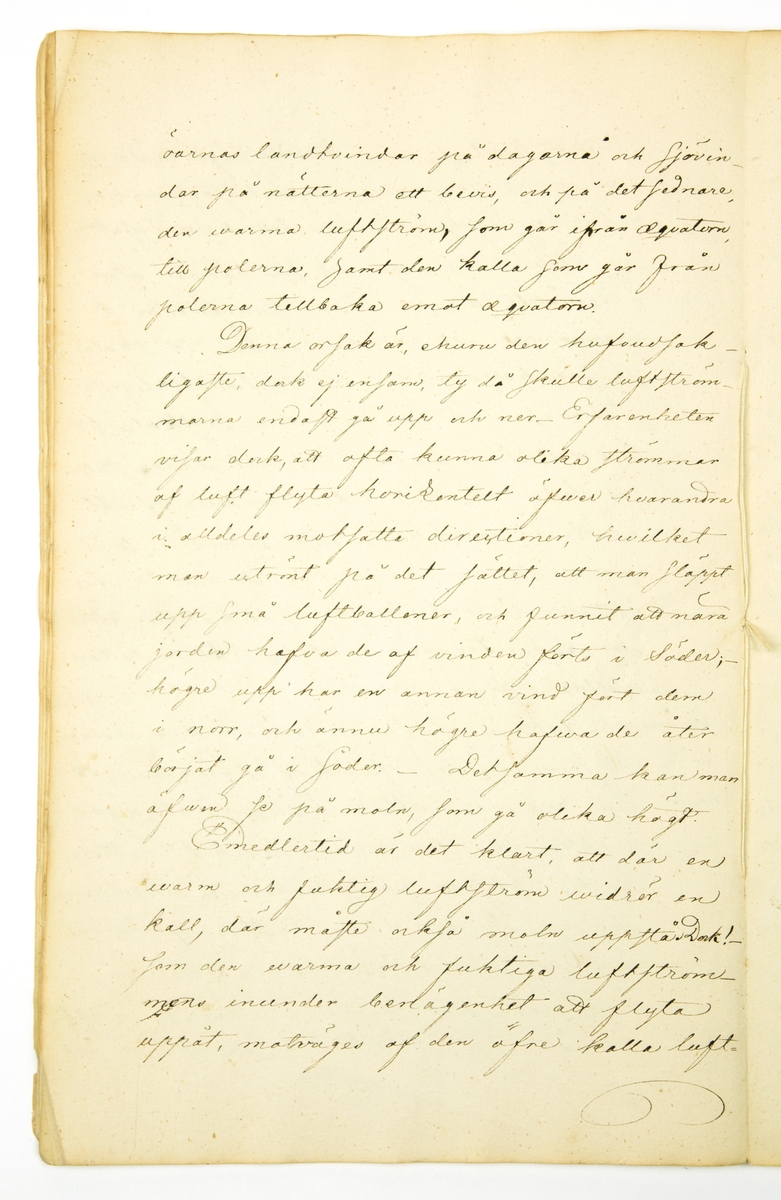 öarnas landtvindar på dagarna och sjövin-
dar på nätterna ett bevis, och på det sednare,
den warma luftström, som går ifrån æquatorn,
till polerna, samt den kalla som går från
polerna tillbaka emot æquatorn.
Denna orsak är, ehuru den hufvudsak-
ligaste, dock ej ensam, ty då skulle luftström-
marna endast gå upp och ner_ Erfarenheten
visar dock, att ofta kunna olika strömmar
af luft flyta horizontelt öfwer hvarandra
i alldeles motsatta directioner, hwilket
man utrönt på det sättet, att man släppt
upp små luftballoner, och funnit att nära
jorden hafva de af vinden förts i Söder;_
högre upp har en annan vind fört dem
i norr, och ännu högre hafwa de åter
börjat gå i Söder. _ Detsamma kan man
äfwen se på moln, som gå olika högt.
Emedlertid är det klart, att där en
warm och fuktig luftström widrör en
kall, där måste också moln uppstå. Dock!_
som den warma och fuktiga luftström-
mens inunder benägenhet att flyta
uppåt, motväges af den öfre kalla luft-